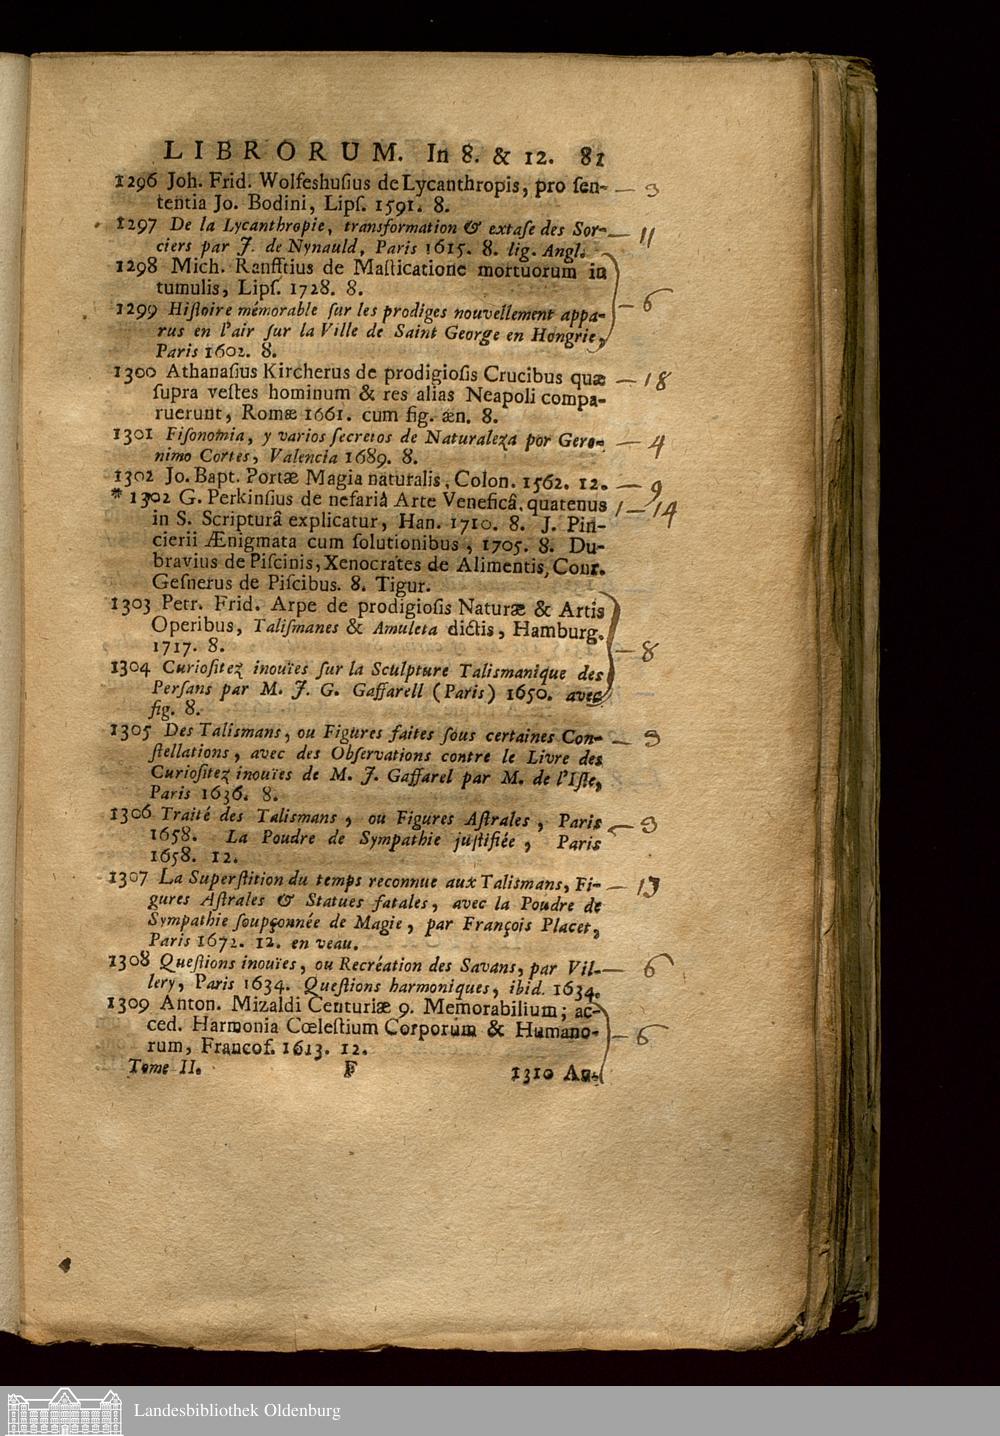 LIBRORUM. In 8. & 12. 81
1296 Joh. Frid. Wolfeshusius de Lycanthropis, pro sen- — 3
tentia Jo. Bodini, Lips. 1591. 8.
1297 De la Lycanthropie, transformation & extase des Sor- — 11
ciers par J. de Nynauld, Paris 1615. 8. lig. Angl.
1298 Mich. Ranfftius de Masticatione mortuorum in
tumulis, Lips. 1728. 8.
1299 Histoire mémorable sur les prodiges nouvellement appa- — 6
rus en l'air sur la Ville de Saint George en Hongrie,
Paris 1602. 8.
1300 Athanasius Kircherus de prodigiosis Crucibus quæ — 18
supra vestes hominum & res alias Neapoli compa-
ruerunt, Romæ 1661. cum fig. æn. 8.
1301 Fisonomia, y varios secretos de Naturaleza por Gero- — 4
nimo Cortes, Valencia 1689. 8.
1302 Jo. Bapt. Portæ Magia naturalis, Colon. 1562. 12. — 9
* 1302 G. Perkinsius de nefariâ Arte Veneficâ, quatenus 1 — 14
in S. Scripturâ explicatur, Han. 1710. 8. J. Pin-
cierii Ænigmata cum solutionibus, 1705. 8. Du-
bravius de Piscinis, Xenocrates de Alimentis, Conr.
Gesnerus de Piscibus. 8. Tigur.
1303 Petr. Frid. Arpe de prodigiosis Naturæ & Artis
Operibus, Talismanes & Amuleta dictis, Hamburg.
1717. 8. — 8
1304 Curiositez inouïes sur la Sculpture Talismanique des
Persans par M. J. G. Gaffarell (Paris) 1650. avec
fig. 8.
1305 Des Talismans, ou Figures faites sous certaines Con- — 3
stellations, avec des Observations contre le Livre des
Curiositez inouïes de M. J. Gaffarel par M. de l'Isle,
Paris 1636. 8.
1306 Traité des Talismans, ou Figures Astrales, Paris — 3
1658. La Poudre de Sympathie justifiée, Paris
1658. 12.
1307 La Superstition du temps reconnue aux Talismans, Fi- — 13
gures Astrales & Statues fatales, avec la Poudre de
Sympathie soupçonnée de Magie, par François Placet,
Paris 1672. 12. en veau.
1308 Questions inouïes, ou Recréation des Savans, par Vil- — 6
lery, Paris 1634. Questions harmoniques, ibid. 1634.
1309 Anton. Mizaldi Centuriæ 9. Memorabilium; ac-
ced. Harmonia Cœlestium Corporum & Humano- — 6
rum, Francof. 1613. 12.
Tome II. F 1310 An-
Landesbibliothek Oldenburg